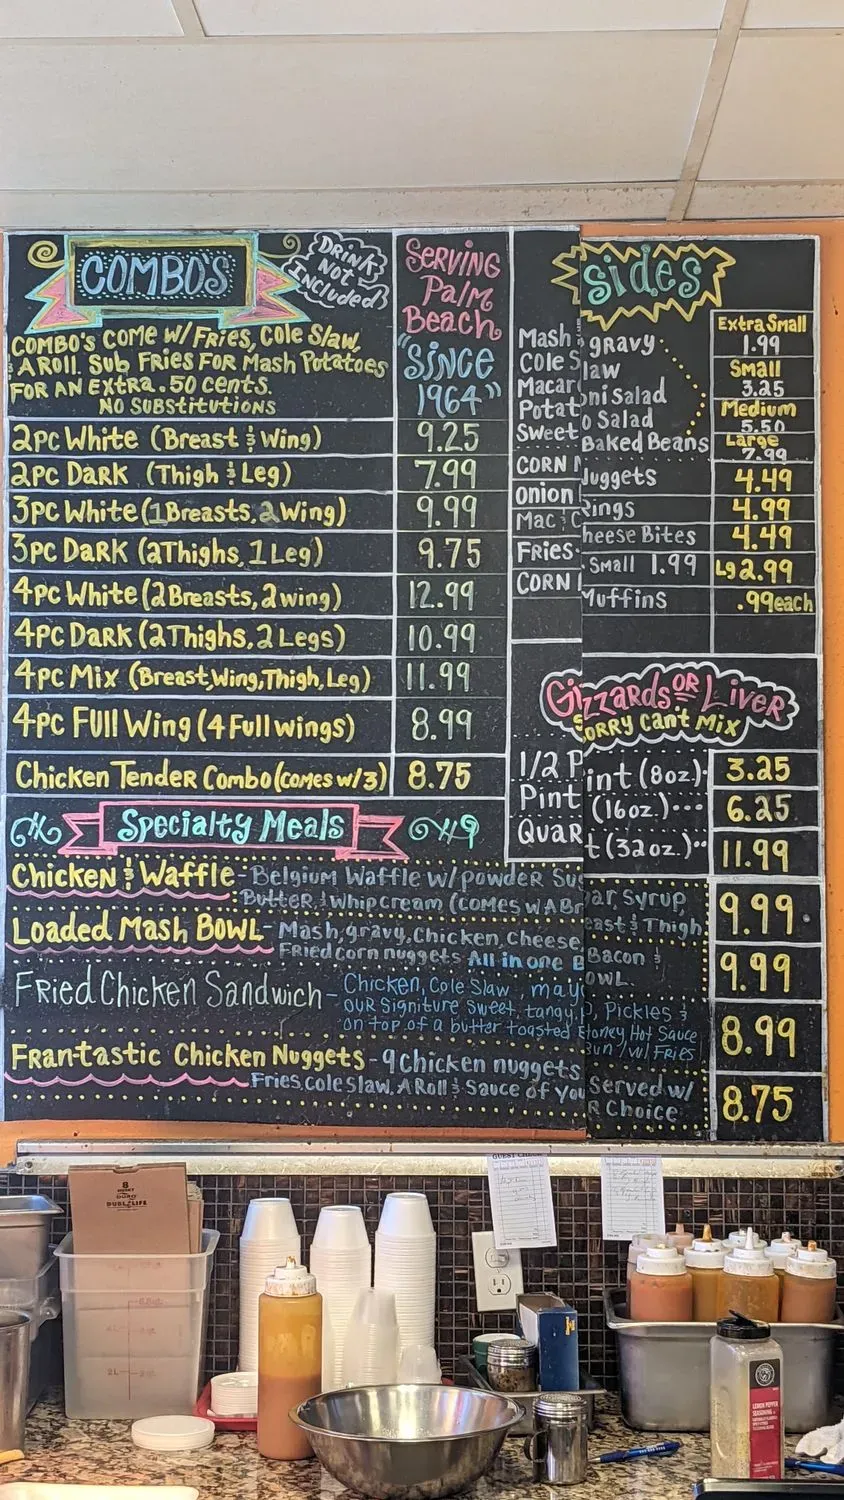 COMBO'S
DRINK
NOT
INCLUDED
COMBO'S COME W/ FRIES, COLE SLAW,
& A ROLL. SUB FRIES FOR MASH POTATOES
FOR AN EXTRA .50 CENTS.
NO SUBSTITUTIONS
SERVING
Palm
Beach
"SINCE
1964"
2PC White (Breast & Wing) 9.25
2PC DARK (Thigh & Leg) 7.99
3PC White (1Breasts, 2 Wing) 9.99
3PC DARK (2Thighs, 1 Leg) 9.75
4PC White (2Breasts, 2wing) 12.99
4PC DARK (2Thighs, 2 Legs) 10.99
4PC MIX (Breast,Wing,Thigh,Leg) 11.99
4PC FUll Wing (4 Full wings) 8.99
Chicken Tender Combo (comes w/3) 8.75
Sides
Extra Small
1.99
Small
3.25
Medium
5.50
Large
7.99
Mash & gravy
Cole Slaw
Macaroni Salad
Potato Salad
Sweet Baked Beans
CORN Nuggets 4.49
Onion Rings 4.99
Mac & Cheese Bites 4.49
Fries. Small 1.99 Lg 2.99
CORN Muffins .99each
Gizzards OR Liver
SORRY Can't Mix
1/2 Pint (8oz). 3.25
Pint (16oz.)... 6.25
QUART (32oz.).. 11.99
Specialty Meals
Chicken & Waffle - Belgium Waffle w/ powder Sugar, Syrup,
Butter, & whipcream (comes w A Breast & Thigh 9.99
Loaded Mash BOWL - Mash, gravy, Chicken, Cheese, Bacon &
Fried corn nuggets All in one BOWL. 9.99
Fried Chicken Sandwich - Chicken, Cole Slaw, mayo, Pickles &
OUR Signiture Sweet, tangy, Honey Hot Sauce
on top of a butter toasted Bun / w/ Fries 8.99
Fran-tastic Chicken Nuggets - 9 Chicken nuggets Served w/
Fries, cole Slaw, A Roll & Sauce of YouR Choice 8.75
GUEST CHECK
8
DUBL LIFE
2L
LEMON PEPPER
SEASONING